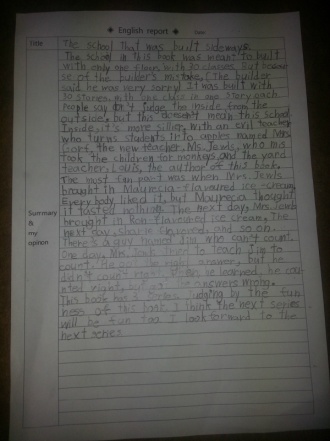 English report
Title
The school that was built sideways.
The school in this book was meant to built
with only one floors with 30 classes. But becau
se of the builder's mistake, (The builder
said he was very sorry) It was built with
30 stories, with one class in one story each.
People say don't judge the inside from the
outside, but this doesn't mean this school.
Inside, it's more sillier, with an evil teacher
who turns students into apples named Mrs.
Gorf, the new teacher, Ms. Jewls, who mis
took the children for monkeys and the yard
teacher, Louis, the author of this book.
The most fun part was when Mrs. Jewls
brought in Maurecia-flavoured ice-cream.
Every body liked it, but Maurecia thought
it tasted nothing. The next day, Mrs. Jewls
brought in Ron flavoured ice cream. The
next day, flavoured, and so on.
There's a guy named Jim who can't count.
One day, Ms. Jewls tried to teach Jim to
count. He got the right answer, but he
didn't count right. he learned, he cou
nted right, but got the answers wrong.
This book has 3 series. Judging by the fun
ness of this book, I think the next series
will be fun too. I look forward to the
next series
Summary
&
my
opinion